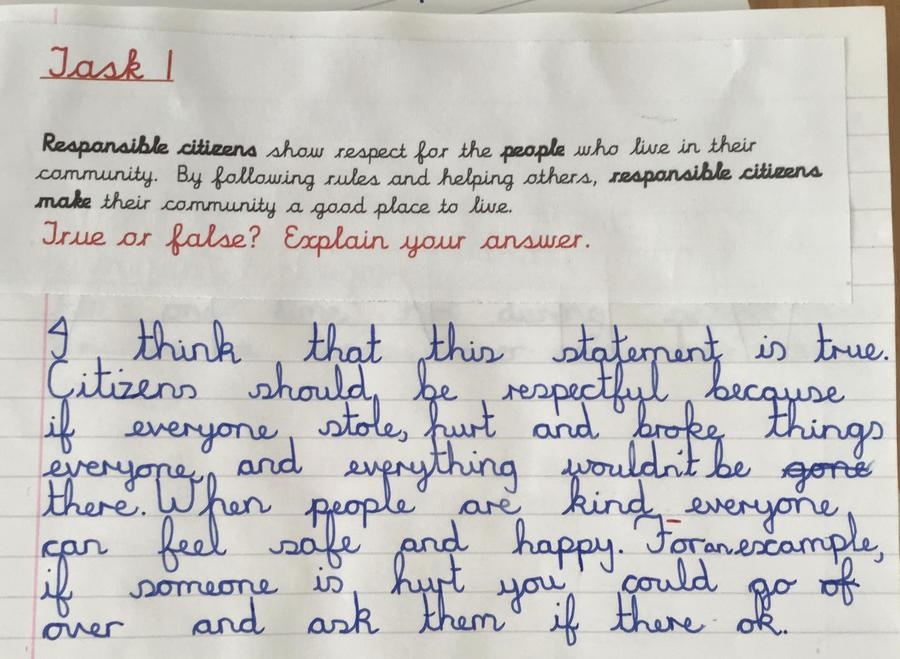 Task 1
Responsible citizens show respect for the people who live in their
community. By following rules and helping others, responsible citizens
make their community a good place to live.
True or false? Explain your answer.
I think that this statement is true.
Citizens should be respectful because
if everyone stole, hurt and broke things
everyone and everything wouldn't be gone
there. When people are kind everyone
can feel safe and happy. For an example,
if someone is hurt you could go of
over and ask them if there ok.